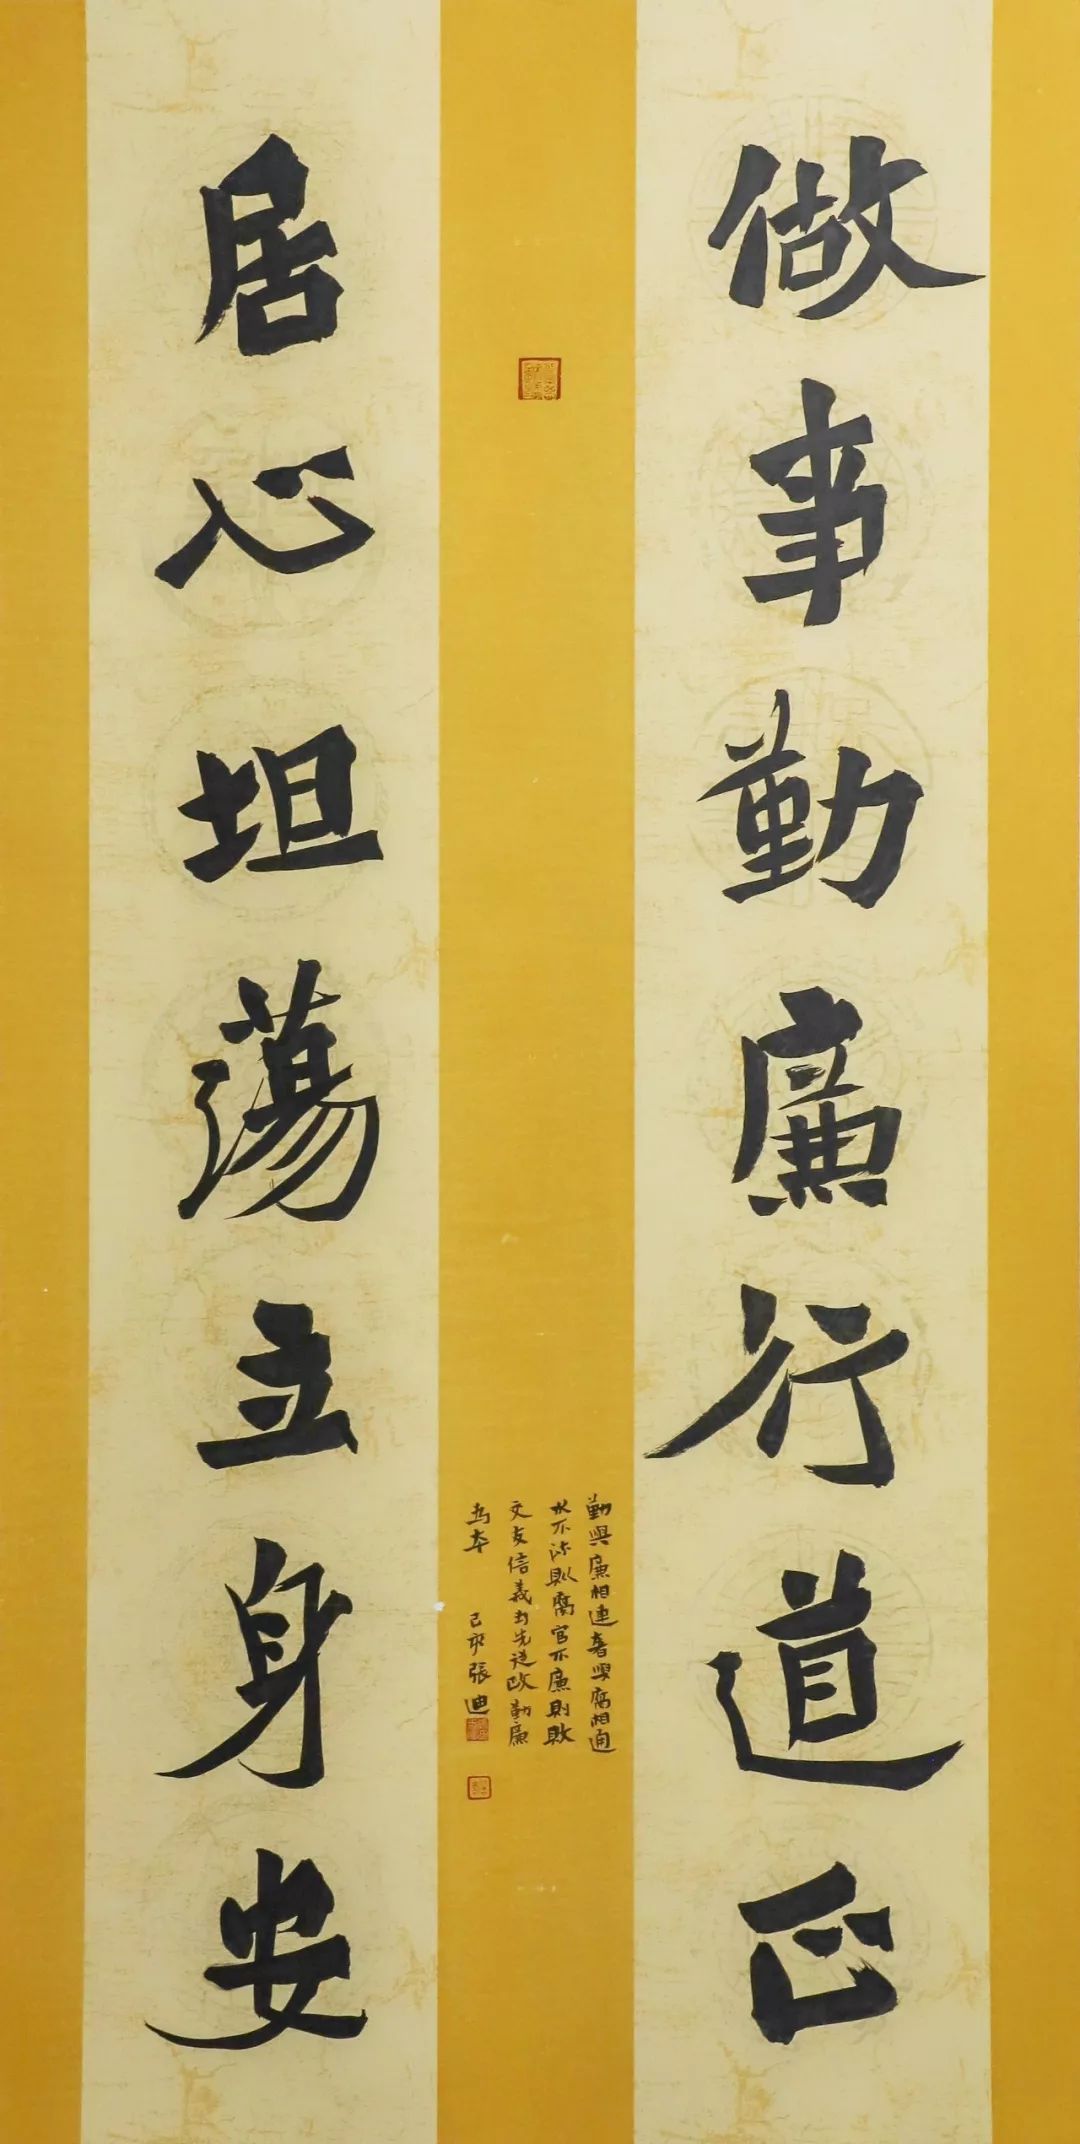 做事勤廉行道正
居心坦蕩立身安
勤與廉相連奢與腐相通
水不流則腐官不廉則敗
交友信義為先從政勤廉
為本 己亥張迪